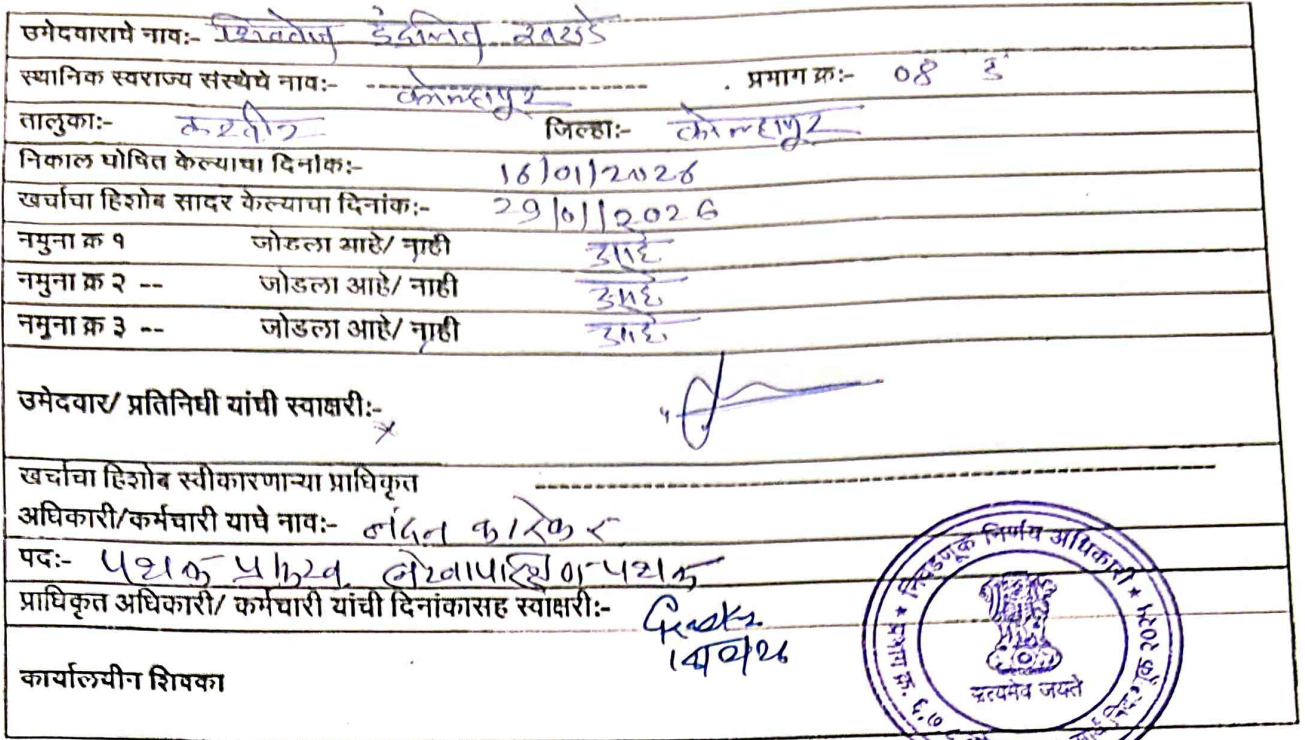 उमेदवाराचे नाव:- शिवतेज इंद्रजित खराडे
स्थानिक स्वराज्य संस्थेचे नाव:- कोल्हापूर . प्रभाग क्र:- 08 ड
तालुका:- करवीर जिल्हा:- कोल्हापूर
निकाल घोषित केल्याचा दिनांक:- 16/01/2026
खर्चाचा हिशोब सादर केल्याचा दिनांक:- 29/01/2026
नमुना क्र १ जोडला आहे/ नाही आहे
नमुना क्र २ -- जोडला आहे/ नाही आहे
नमुना क्र ३ -- जोडला आहे/ नाही आहे
उमेदवार/ प्रतिनिधी यांची स्वाक्षरी:-
खर्चाचा हिशोब स्वीकारणाऱ्या प्राधिकृत
अधिकारी/कर्मचारी याचे नाव:- नंदन कारेकर
पद:- पथक प्रमुख, लेखापरिक्षण पथक
प्राधिकृत अधिकारी/ कर्मचारी यांची दिनांकासह स्वाक्षरी:-
कार्यालयीन शिक्का
निवडणूक निर्णय अधिकारी
प्रभाग क्र. ६,७
सत्यमेव जयते